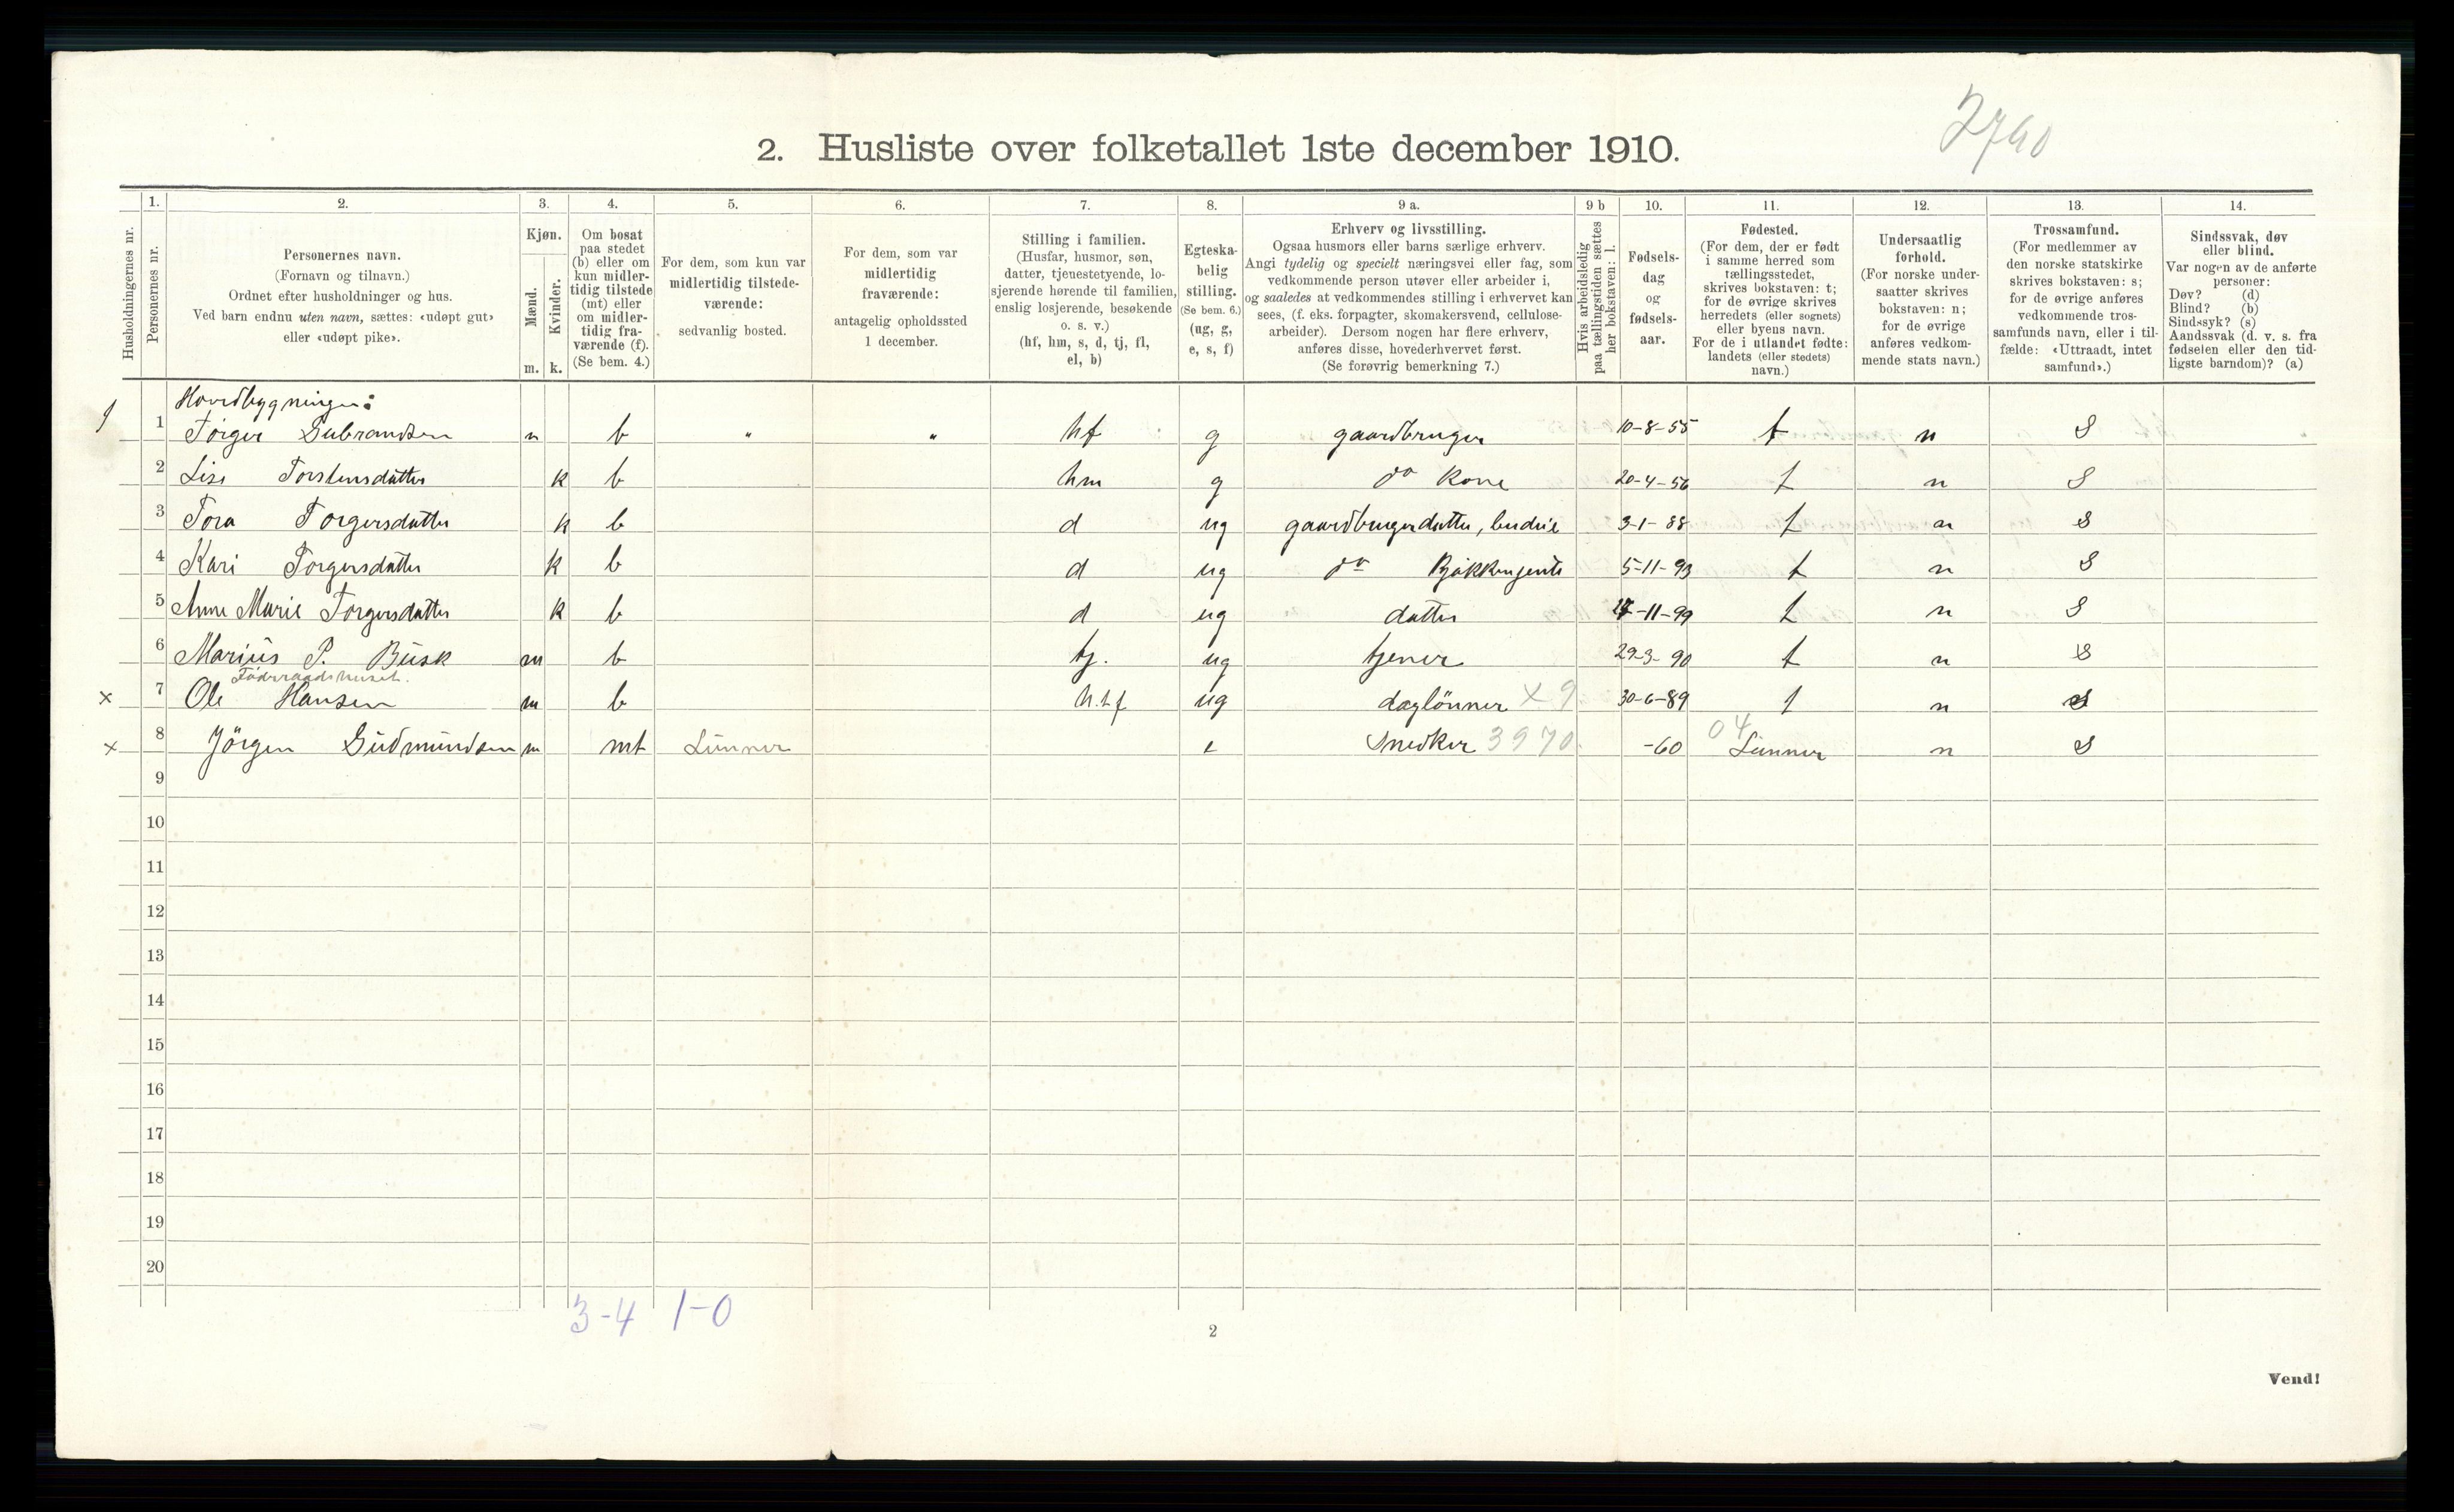 2740
2. Husliste over folketallet 1ste december 1910.
1. 2. 3. 4. 5. 6. 7. 8. 9 a. 9 b 10. 11. 12. 13. 14.
Husholdningernes nr.
Personernes nr.
Personernes navn.
(Fornavn og tilnavn.)
Ordnet efter husholdninger og hus.
Ved barn endnu uten navn, sættes: «udøpt gut»
eller «udøpt pike».
Kjøn.
Mænd.
Kvinder.
m. k.
Om bosat
paa stedet
(b) eller om
kun midler-
tidig tilstede
(mt) eller
om midler-
tidig fra-
værende (f).
(Se bem. 4.)
For dem, som kun var
midlertidig tilstede-
værende:
sedvanlig bosted.
For dem, som var
midlertidig
fraværende:
antagelig opholdssted
1 december.
Stilling i familien.
(Husfar, husmor, søn,
datter, tjenestetyende, lo-
sjerende hørende til familien,
enslig losjerende, besøkende
o. s. v.)
(hf, hm, s, d, tj, fl,
el, b)
Egteska-
belig
stilling.
(Se bem. 6.)
(ug, g,
e, s, f)
Erhverv og livsstilling.
Ogsaa husmors eller barns særlige erhverv.
Angi tydelig og specielt næringsvei eller fag, som
vedkommende person utøver eller arbeider i,
og saaledes at vedkommendes stilling i erhvervet kan
sees, (f. eks. forpagter, skomakersvend, cellulose-
arbeider). Dersom nogen har flere erhverv,
anføres disse, hovederhvervet først.
(Se forøvrig bemerkning 7.)
Hvis arbeidsledig
paa tællingstiden sættes
her bokstaven: l.
Fødsels-
dag
og
fødsels-
aar.
Fødested.
(For dem, der er født
i samme herred som
tællingsstedet,
skrives bokstaven: t;
for de øvrige skrives
herredets (eller sognets)
eller byens navn.
For de i utlandet fødte:
landets (eller stedets)
navn.)
Undersaatlig
forhold.
(For norske under-
saatter skrives
bokstaven: n;
for de øvrige
anføres vedkom-
mende stats navn.)
Trossamfund.
(For medlemmer av
den norske statskirke
skrives bokstaven: s;
for de øvrige anføres
vedkommende tros-
samfunds navn, eller i til-
fælde: «Uttraadt, intet
samfund».)
Sindssvak, døv
eller blind.
Var nogen av de anførte
personer:
Døv? (d)
Blind? (b)
Sindssyk? (s)
Aandssvak (d. v. s. fra
fødselen eller den tid-
ligste barndom)? (a)
Hovedbygningen:
1 1 Torger Gubrandsen m b " " hf g gaardbruger 10-8-55 t n S
2 Lise Torstensdatter k b hm g do Kone 20-4-56 t n S
3 Tora Torgersdatter k b d ug gaardbrugerdatter, budeie 3-1-88 t n S
4 Kari Torgersdatter k b d ug do Kjøkkenjente 5-11-93 t n S
5 Anne Marie Torgersdatter k b d ug datter -11-99 t n S
6 Marius P. Busk m b tj. ug tjener 29-3-90 t n S
Föderaadshuset.
x 7 Ole Hansen m b ug daglönner x 9 30-6-89 t n S
x 8 Jörgen Gudmundsen m mt Lunner e Snedker 3970. -60 04 Lunner n S
9
10
11
12
13
14
15
16
17
18
19
20
3-4 1-0
2
Vend!